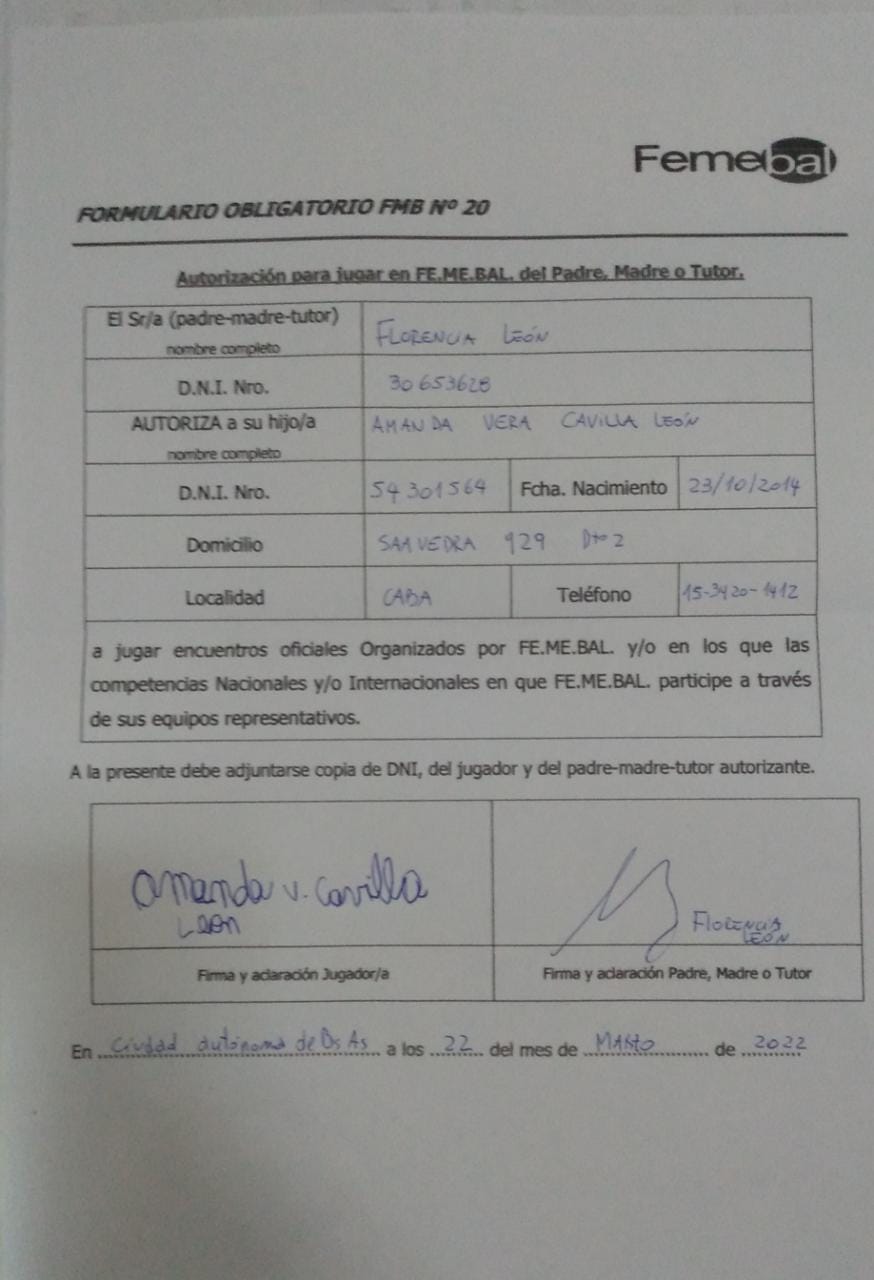 Femebal
FORMULARIO OBLIGATORIO FMB Nº 20
Autorización para jugar en FE.ME.BAL. del Padre, Madre o Tutor.
El Sr/a (padre-madre-tutor)
nombre completo
FLORENCIA LEÓN
D.N.I. Nro.
30653628
AUTORIZA a su hijo/a
nombre completo
AMANDA VERA CAVILLA LEÓN
D.N.I. Nro.
54301564
Fcha. Nacimiento
23/10/2014
Domicilio
SAAVEDRA 929 Dto 2
Localidad
CABA
Teléfono
15-3420-1412
a jugar encuentros oficiales Organizados por FE.ME.BAL. y/o en los que las
competencias Nacionales y/o Internacionales en que FE.ME.BAL. participe a través
de sus equipos representativos.
A la presente debe adjuntarse copia de DNI, del jugador y del padre-madre-tutor autorizante.
Amanda V. Cavilla
Leon
FLORENCIA
LEÓN
Firma y aclaración Jugador/a
Firma y aclaración Padre, Madre o Tutor
En Ciudad autónoma de Bs As a los 22 del mes de MARZO de 2022